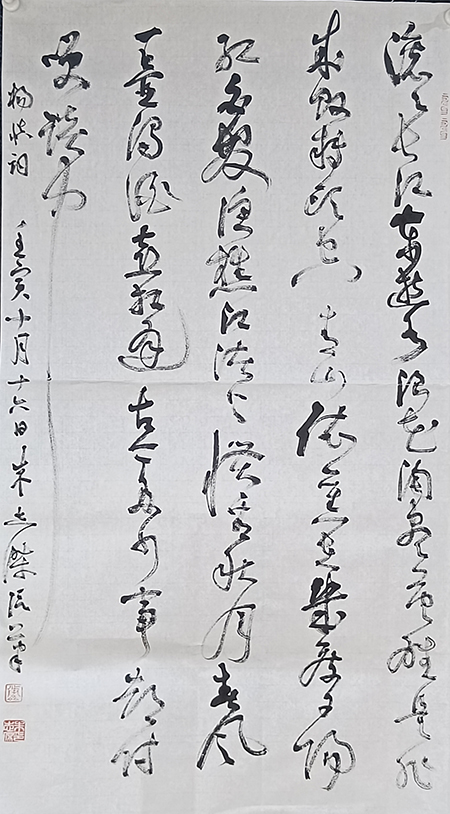 滚滚长江东逝水浪花淘尽英雄是非
成败转头空青山依旧在几度夕阳
红白发渔樵江渚上惯看秋月春风
一壶浊酒喜相逢古今多少事都付
笑谈中
杨慎词 壬寅十月十六日 朱志傑